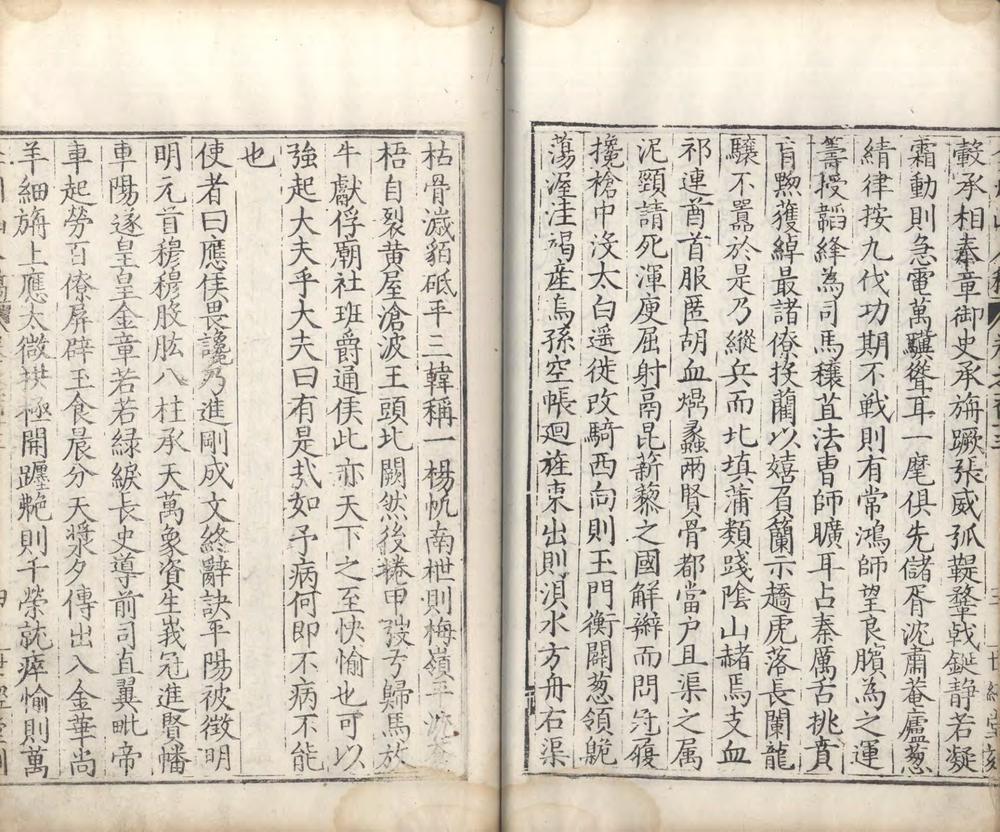 轂承相奉章御史承旃蹶張威弧鞮鞪戟鋋静若凝
霜動則急電萬驥聳耳一麾俱先儲胥沈肅菴廬葱
綪律按九伐功期不戦則有常鴻師望良臏為之運
籌授韜絳為司馬穰苴法曺師曠耳占秦厲舌挑賁
育勠獲綽最諸僚投藺以嬉負籣示趫虎落長闌龍
驤不嚣於是乃縱兵而北填蒲類踐陰山赭焉支血
祁連酋首服匿胡血煬蠡兩賢骨都當户且渠之属
泥頸請死渾庾屈射鬲昆薪藜之國解辮而問冠履
攙槍中沒太白遥徙改騎西向則玉門衡闢葱領
蕩渥洼褐産烏孫空帳廻旌朿出則浿水方舟右渠
枯骨濊貊砥平三韓稱一楊帆南枻則梅嶺平
梧自裂黄屋滄波王頭北闕然後捲甲弢弓歸馬放
牛獻俘廟社班爵通侯此亦天下之至快愉也可以
強起大夫乎大夫曰有是㢤如予病何即不病不能
也
使者曰應侯畏讒乃進剛成文終辭訣平陽被徴明
明元首穆穆股肱八柱承天萬象資生峩冠進賢幡
車陽遂皇皇金章若若緑綟長史導前司直翼毗帝
車起勞百僚屏辟玉食晨分天漿夕傳出入金華尚
羊細旃上應太微拱極開躔艴則千榮就瘁愉則萬